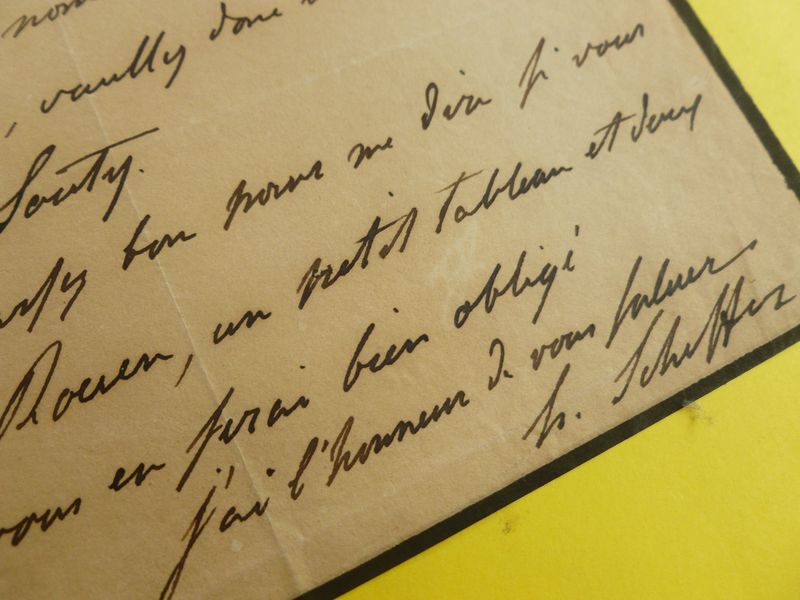 veuillez donc
Souty.
bon pour me dire si vous
Rouen, un petit tableau et deux
vous en serai bien obligé
j'ai l'honneur de vous saluer
h. Scheffer